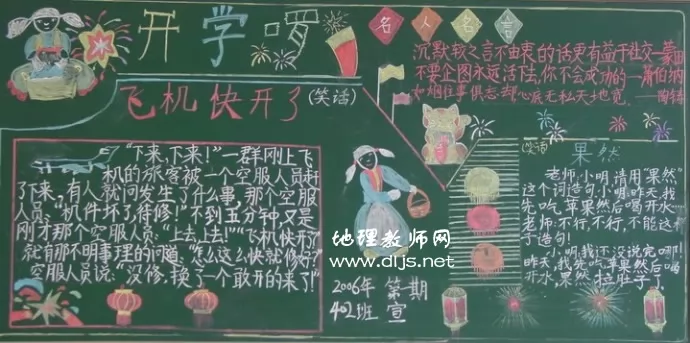 开学啰
名人名言
沉默较之言不由衷的话更有益于社交—蒙田
不要企图永远活陆,你不会成功的—萧伯纳
如烟往事俱忘却,心底无私天地宽。——陶铸
飞机快开了(笑话)
"下来,下来!"一群刚上飞
机的旅客被一个空服人员赶
了下来,有人就问发生了什么事,那个空服
人员:"机件坏了,待修!"不到五分钟,又是
刚才那个空服人员:"上去,上去!""飞机快开了"
就有那不明事理的问道:"怎么这么快就修好了"
空服人员说:"没修,换了个敢开的来了!"
(笑话)
果然
老师:小明,请用"果然"
这个词造句,小明:昨天我
先吃苹果然后喝开水
老师:不行,不行,不能这样
子造句!
小明:我还没说完哪!
昨天,我先吃苹果,然后喝
开水,果然拉肚子了。
地理教师网
www.dljs.net
2006年 第 期
402班 宣